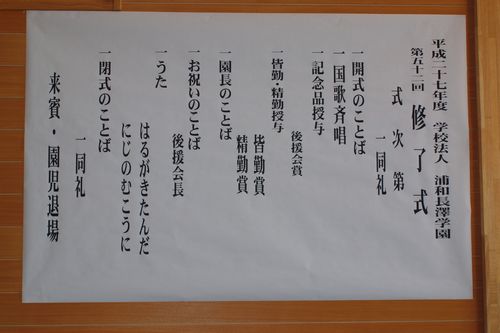 平成二十七年度 学校法人 浦和長澤学園
第五十二回 修了式
式次第
一同礼
一開式のことば
一国歌斉唱
一記念品授与
後援会賞
一皆勤・精勤授与
皆勤賞
精勤賞
一園長のことば
一お祝いのことば
後援会長
一うた
はるがきたんだ
にじのむこうに
一閉式のことば
一同礼
来賓・園児退場